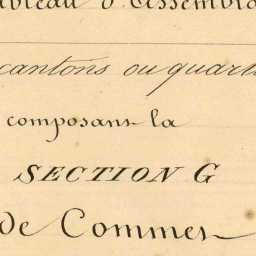 bleau d'assembla
cantons ou quart
composans la
SECTION G
de Commes